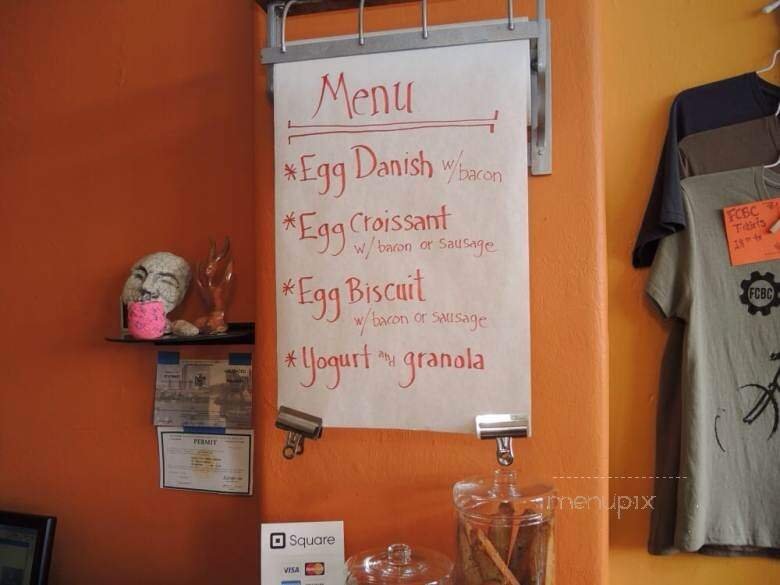 Menu
*Egg Danish w/bacon
*Egg Croissant
w/bacon or sausage
*Egg Biscuit
w/bacon or sausage
*Yogurt and granola
FCBC
T-shirts
FCBC
PERMIT
Square
VISA
MasterCard
menupix